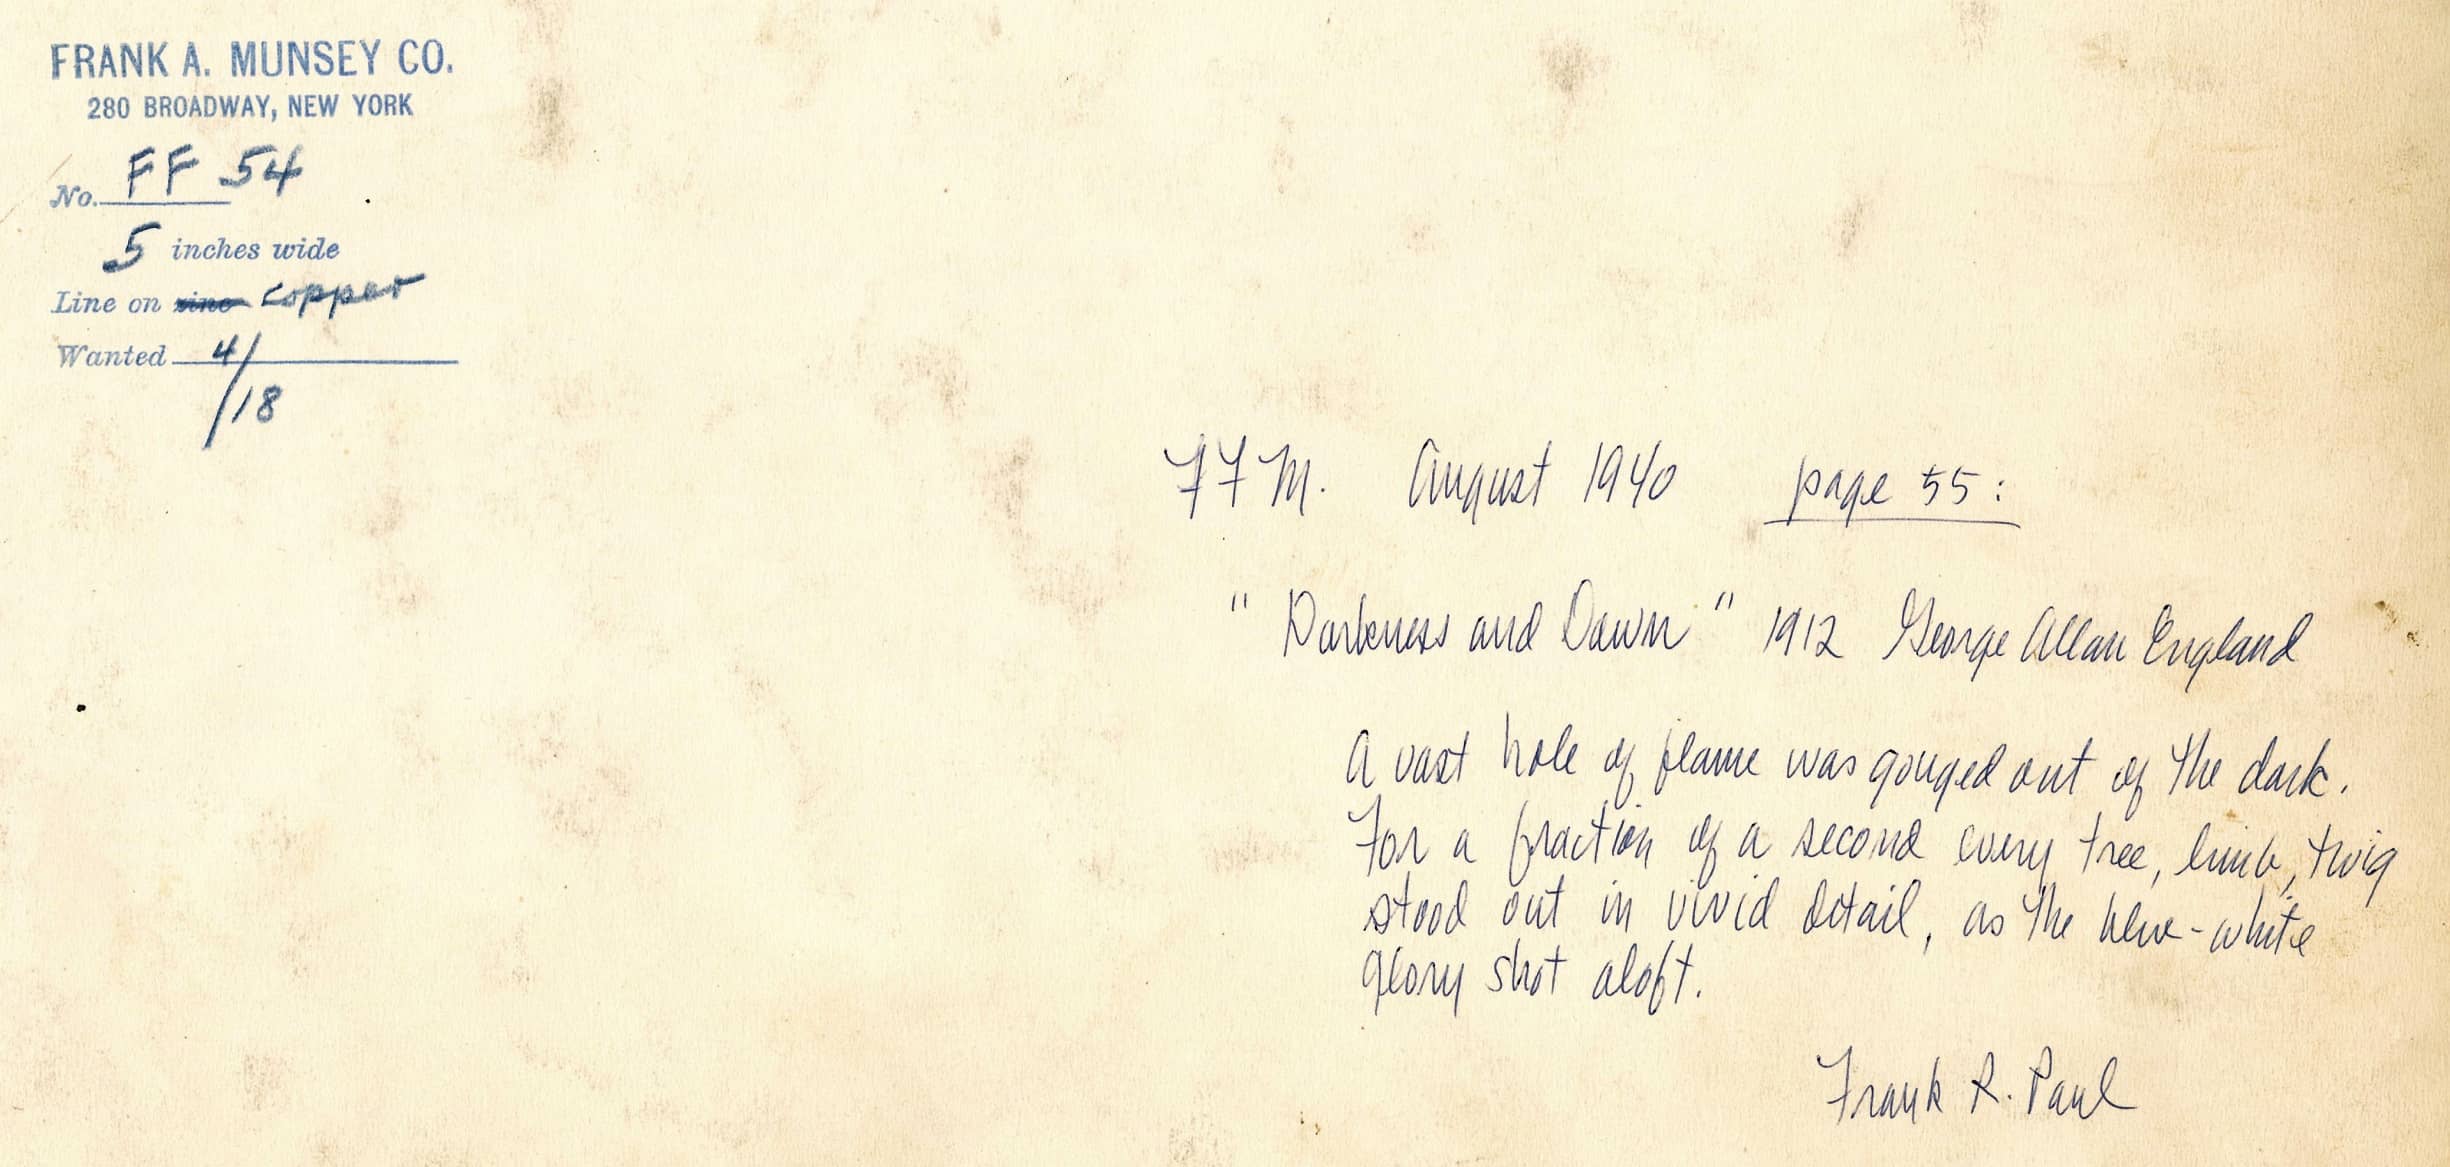 FRANK A. MUNSEY CO.
280 BROADWAY, NEW YORK
No. FF 54
5 inches wide
Line on zinc copper
Wanted 4/18
FFM. August 1940 page 55:
"Darkness and Dawn" 1912 George Allan England
A vast hole of flame was gouged out of the dark.
For a fraction of a second every tree, limb, twig
stood out in vivid detail, as the blue-white
glory shot aloft.
Frank R. Paul